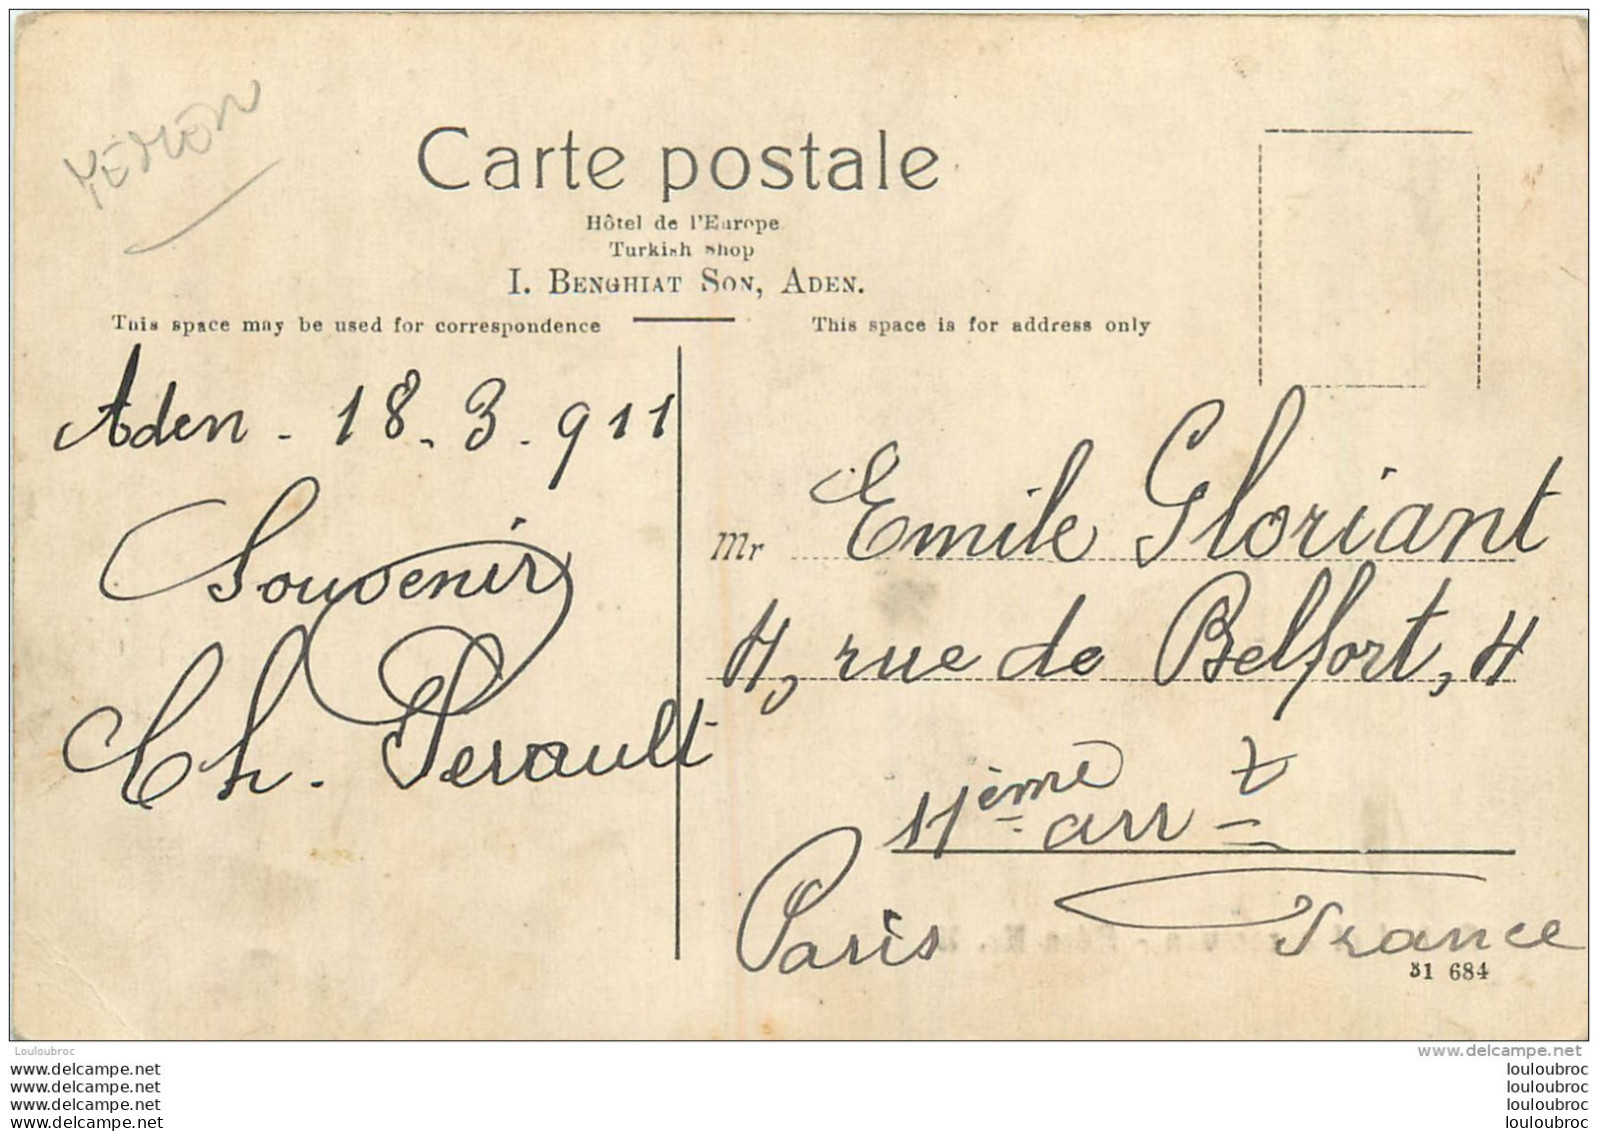 YÉMEN
Carte postale
Hôtel de l'Europe
Turkish shop
I. BENGHIAT SON, ADEN.
This space may be used for correspondence
This space is for address only
Aden - 18 - 3 - 911
Souvenir
Ch. Perault
Mr Emile Gloriant
4, rue de Belfort, 4
11ème arrt
Paris
France
31 684
Louloubroc
www.delcampe.net
www.delcampe.net
www.delcampe.net
www.delcampe.net
www.delcampe.net
louloubroc
louloubroc
louloubroc
louloubroc